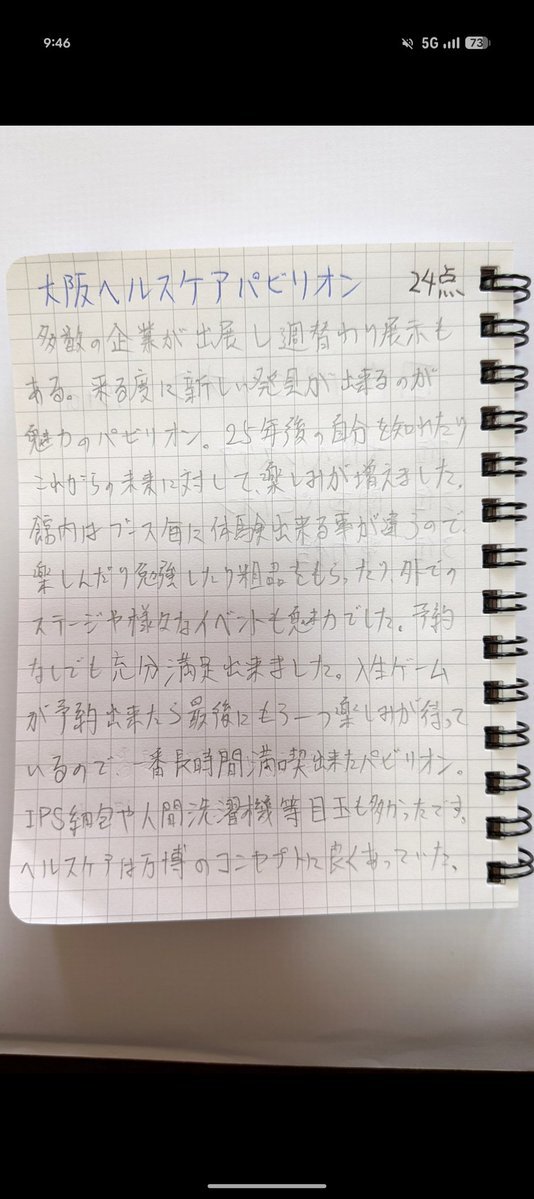 9:46 5G 73
大阪ヘルスケアパビリオン 24点
多数の企業が出展し週替わり展示も
ある。来る度に新しい発見が出来るのが
魅力のパビリオン。25年後の自分を知れたり
これからの未来に対して、楽しみが増えました。
館内はブース毎に体験出来る事が違うので、
楽しんだり勉強したり粗品をもらったり、外での
ステージや様々なイベントも魅力でした。予約
なしでも充分満足出来ました。人生ゲーム
が予約出来たら最後にもう一つ楽しみが待って
いるので、一番長時間満喫出来たパビリオン。
IPS細包や人間洗濯機等目玉も多かったです。
ヘルスケアは万博のコンセプトに良くあっていた。